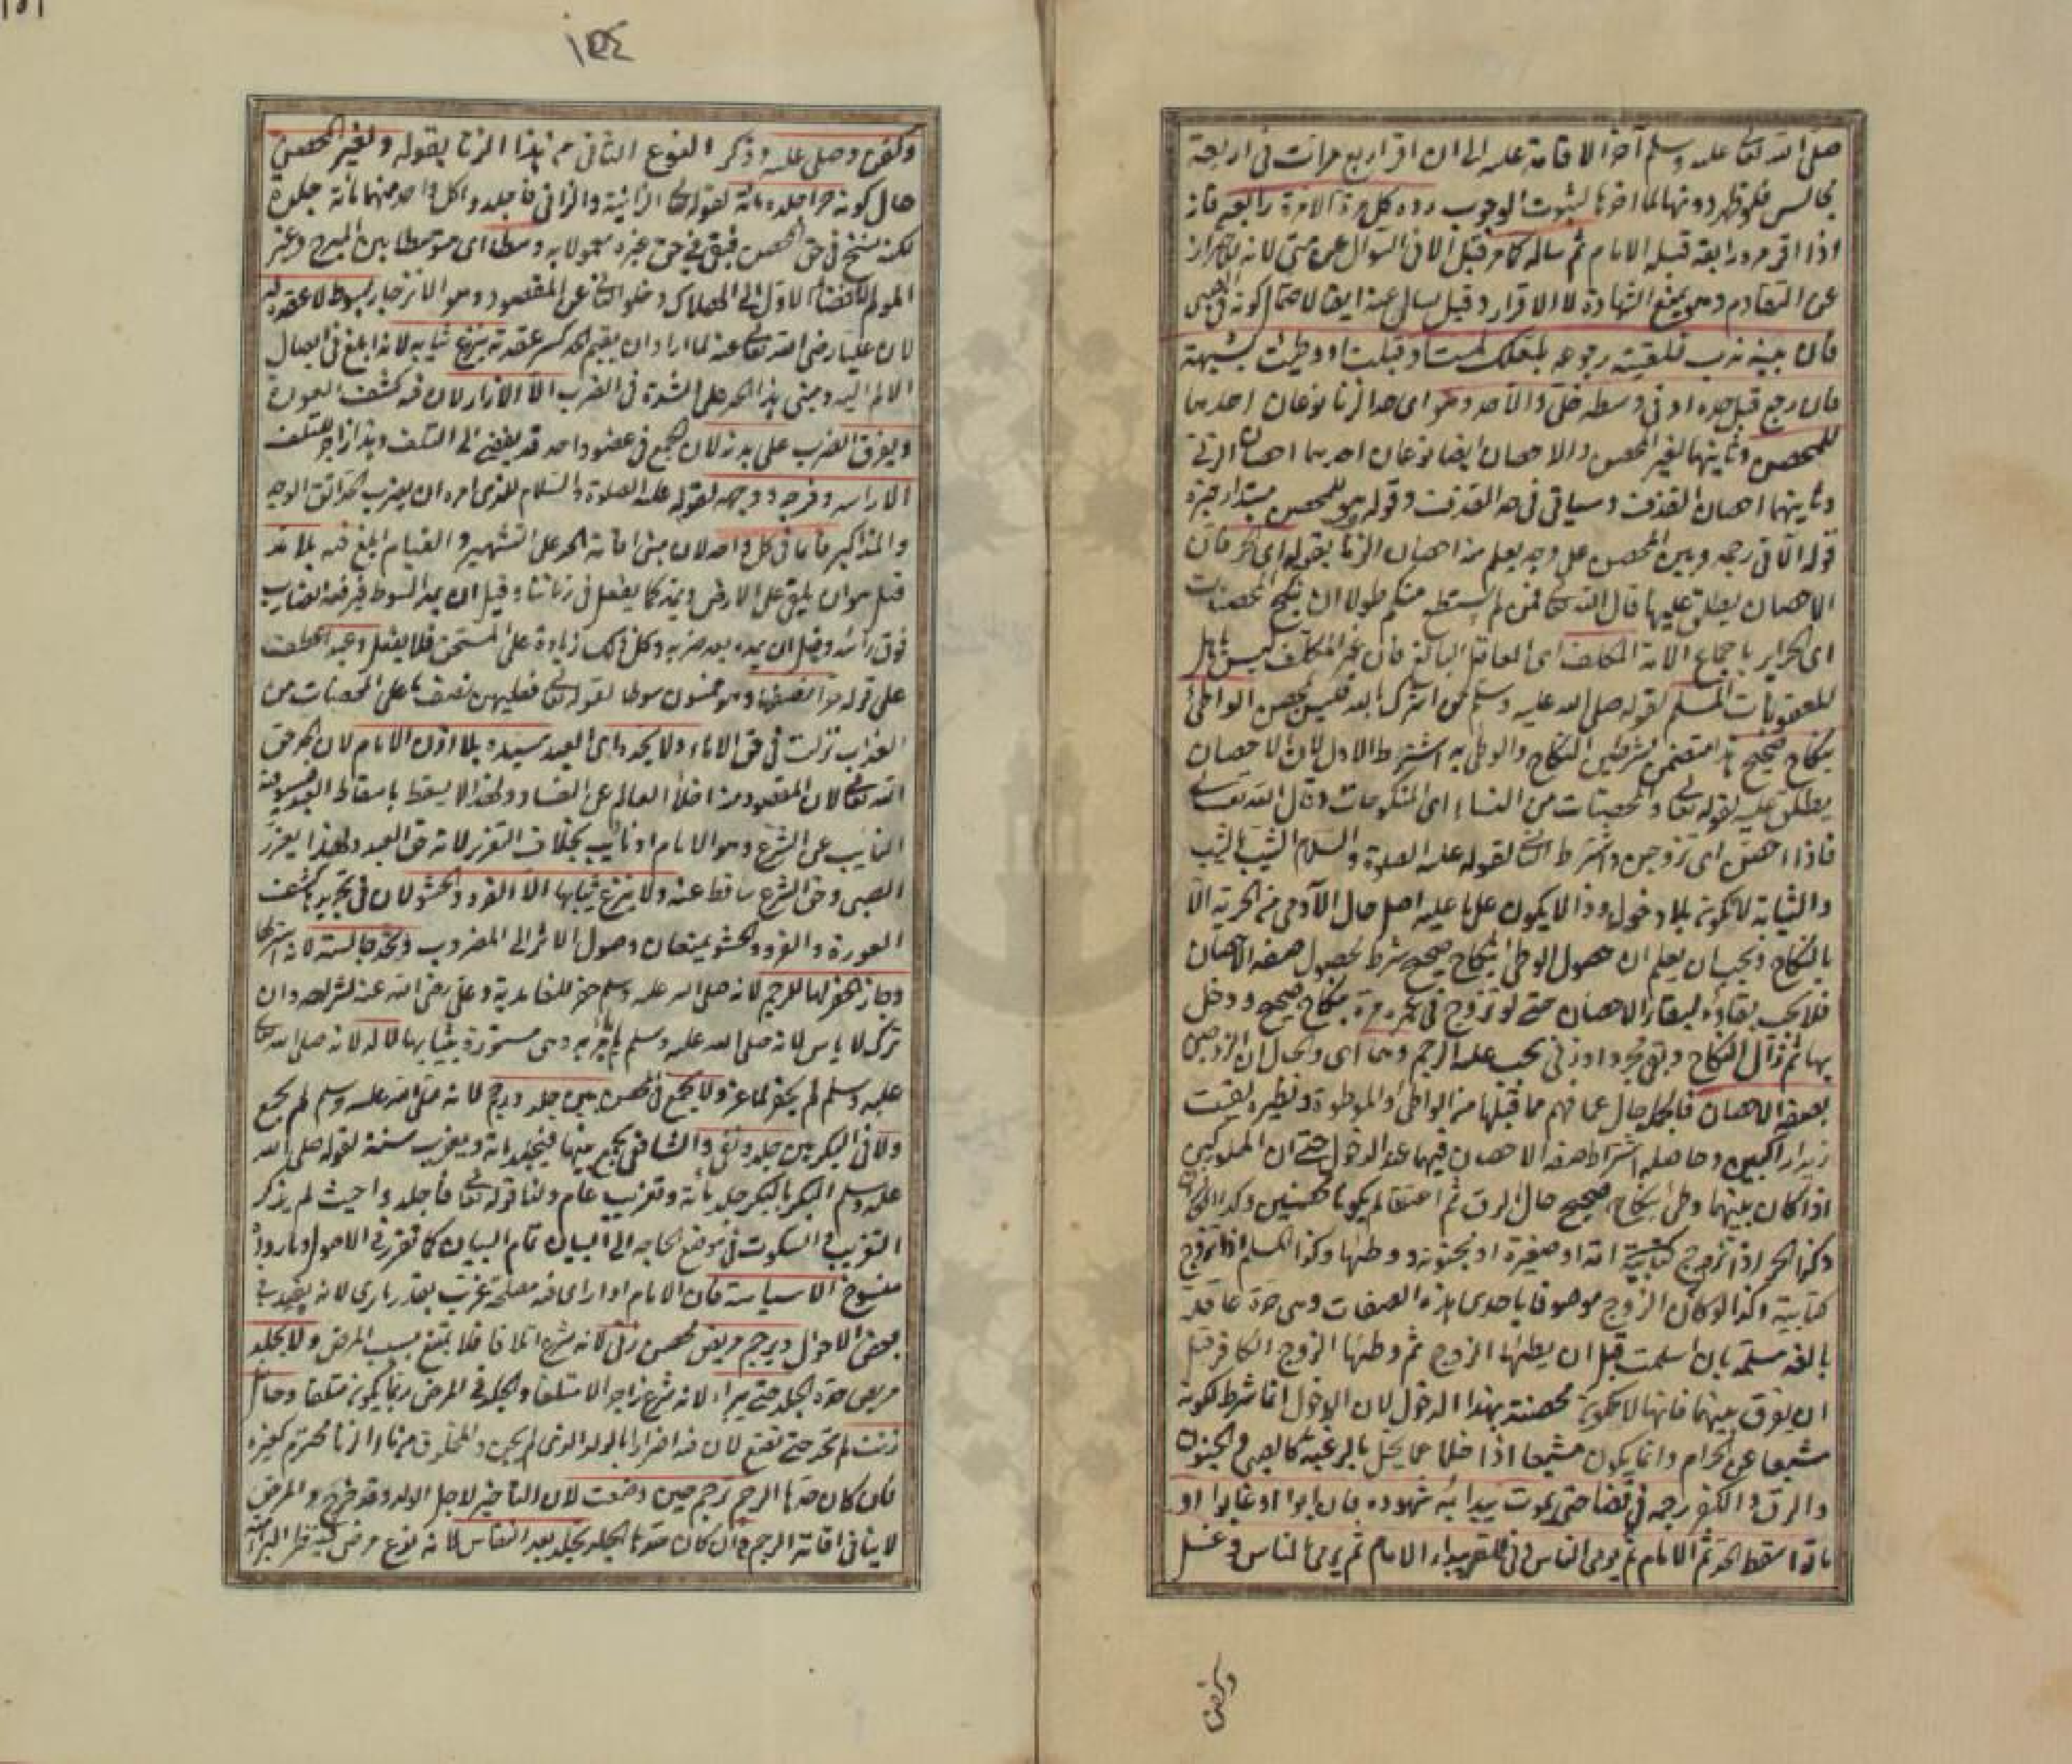 صلى الله تعالى عليه وسلم أخر الاقامة عليه الى ان اقر اربع مرات فى اربعة
مجالس فلو ظهر دونها لما اخرها لثبوت الوجوب رده كل مرة الا مرة رابعة فانه
اذا اقر مرة رابعة قبله الامام ثم ساله كما مر قبل الا فى السؤال عن متى لانه للاحتراز
عن التقادم وهو يمنع الشهادة لا الاقرار وقيل يسال عنه ايضا لاحتمال كونه فى الصبى
فان بينه ندب تلقينه رجوعه بلعلك لمست او قبلت او وطئت بشبهة
فان رجع قبل حده او فى وسطه خلى والا حد وهو اى حد الزنا نوعان احدهما
للمحصن وثانيهما لغير المحصن والاحصان ايضا نوعان احدهما احصان الزنى
وثانيهما احصان القذف وسياتى فى حد القذف وقوله هو للمحصن مبتدا خبره
قوله الآتى رجمه وبين المحصن على وجه يعلم منه احصان الزنا بقوله اى الحر فان
الاحصان يطلق عليها قال الله تعالى فمن لم يستطع منكم طولا ان ينكح المحصنات
اى الحراير باجماع الامة المكلف اى العاقل البالغ فان غير المكلف ليس باهل
للعقوبات المسلم لقوله صلى الله عليه وسلم من اشرك بالله فليس بمحصن الواطئ
بنكاح صحيح هذا متضمن شرطين النكاح والوطئ به اشترط الاول لان الاحصان
يطلق عليه لقوله تعالى والمحصنات من النساء اى المنكوحات وقال الله تعالى
فاذا احصن اى تزوجن واشترط الثانى لقوله عليه الصلوة والسلام الثيب بالثيب
والثيابة لا تكون بلا دخول وذا لا يكون على ما عليه اصل حال الآدمى من الحرية الا
بالنكاح ويجب ان يعلم ان حصول الوطئ بنكاح صحيح شرط لحصول صفة الاحصان
فلا يجب بقاؤه لبقاء الاحصان حتى لو تزوج فى عمره مرة بنكاح صحيح ودخل
بها ثم زال النكاح وبقى مجردا وزنى يجب عليه الرجم وهما اى والحال ان الزوجين
بصفة الاحصان فالجملة حال عما فهم مما قبلها من الواطئ والموطوءة ونظيره لقيت
زيدا راكبين وحاصله اشتراط صفة الاحصان فيهما عند الدخول حتى ان المملوكين
اذا كان بينهما وطئ بنكاح صحيح حال الرق ثم اعتقا لم يكونا محصنين وكذا الكافران
وكذا الحر اذا تزوج كتابية امة او صغيرة او مجنونة ووطئها وكذا المسلم اذا تزوج
كتابية وكذا لو كان الزوج موصوفا باحدى هذه الصفات وهى حرة عاقلة
بالغة مسلمة بان اسلمت قبل ان يطئها الزوج ثم وطئها الزوج الكافر قبل
ان يفرق بينهما فانها لا تكون محصنة بهذا الدخول لان الدخول انما شرط لكونه
مشبعا عن الحرام وانما يكون مشبعا اذا خلا عما يخل بالرغبة كالصبى والجنون
والرق والكفر رجمه فى فضاء حتى يموت يبدا به شهوده فان ابوا او غابوا او
ماتوا سقط الحد ثم الامام ثم يرمى الناس وفى المقر يبداء الامام ثم يرمى الناس وغسل
وكفن
١٥٤
وكفن وصلى عليه وذكر النوع الثانى من هذا الزنا بقوله ولغير المحصن
حال كونه حرا جلده مائة لقوله تعالى الزانية والزانى فاجلدوا كل واحد منهما مائة جلدة
لكنه نسخ فى حق المحصن فبقى فى حق غيره معمولا به وسطا اى متوسطا بين المبرح وغير
المولم لافضاء الاول الى الهلاك وخلو الثانى عن المقصود وهو الانزجار بسوط لا عقدة له
لان عليا رضى الله تعالى عنه لما اراد ان يقيم الحد كسر عقدته ينزع ثيابه لانه ابلغ فى ايصال
الالم اليه ومبنى هذا الحد على الشدة فى الضرب الا الازار لان فيه كشف العورة
ويفرق الضرب على بدنه لان الجمع فى عضو واحد قد يفضى الى التلف وهذا زاجر لا متلف
الا راسه وفرجه ووجهه لقوله عليه الصلوة والسلام للذى امره ان يضرب الحد اتق الوجه
والمذاكير قائما فى كل واحد لان مبنى اقامة الحد على التشهير والقيام ابلغ فيه بلا مد
قيل هو ان يلقى على الارض ويمد كما يفعل فى زماننا وقيل ان يمد السوط فيرفعه الضارب
فوق راسه وقيل ان يمده بعد ضربه وكل ذلك زيادة على المستحق فلا يفعل وعبدا عطف
على قوله حرا نصفها وهو خمسون سوطا لقوله تعالى فعليهن نصف ما على المحصنات من
العذاب نزلت فى حق الاماء ولا يحده اى العبد سيده بلا اذن الامام لان الحد حق
الله تعالى لان المقصود منه اخلاء العالم عن الفساد ولهذا لا يسقط باسقاط العبد فيستوفيه
النايب عن الشرع وهو الامام او نايبه بخلاف التعزير لانه حق العبد ولهذا يعزر
الصبى وحق الشرع ساقط عنه ولا ينزع ثيابها الا الفرو والحشو لان فى تجريدها كشف
العورة والفرو والحشو يمنعان وصول الالم الى المضروب وتحد جالسة لانه استر لها
وجاز الحفر لها للرجم لانه صلى الله عليه وسلم حفر للغامدية وعلى رضى الله عنه لشراحة وان
ترك لا باس لانه صلى الله عليه وسلم لم يامر به وهى مستورة بثيابها لا له لانه صلى الله تعالى
عليه وسلم لم يحفر لماعز ولا يجمع فى المحصن بين جلد ورجم لانه صلى الله عليه وسلم لم يجمع
ولا فى البكر بين جلد ونفى والشافعى يجمع بينهما فيجلد مائة ويغرب سنة لقوله صلى الله
عليه وسلم البكر بالبكر جلد مائة وتغريب عام ولنا قوله تعالى فاجلدوا حيث لم يذكر
التغريب والسكوت فى موضع الحاجة الى البيان تمام البيان كما تقرر فى الاصول وما رواه
منسوخ الا سياسة فان الامام اذا راى فيه مصلحة غرب بقدر ما يرى لانه يفيد فى
بعض الاحوال ويرجم مريض محصن زنى لانه شرع اتلافا فلا يمتنع بسبب المرض ولا يجلد
مريض حده الجلد حتى يبرا لانه شرع زاجرا لا متلفا والجلد فى المرض ربما يكون متلفا وحامل
زنت لم تحد حتى تضع لان فيه اضرارا بالولد الذى لم يجن والمخلوق من ماء الزنا محترم كغيره
فان كان حدها الرجم ترجم حين وضعت لان التاخير لاجل الولد وقد خرج والمرض
لا ينافى اقامة الرجم وان كان حدها الجلد تجلد بعد النفاس لانه نوع مرض